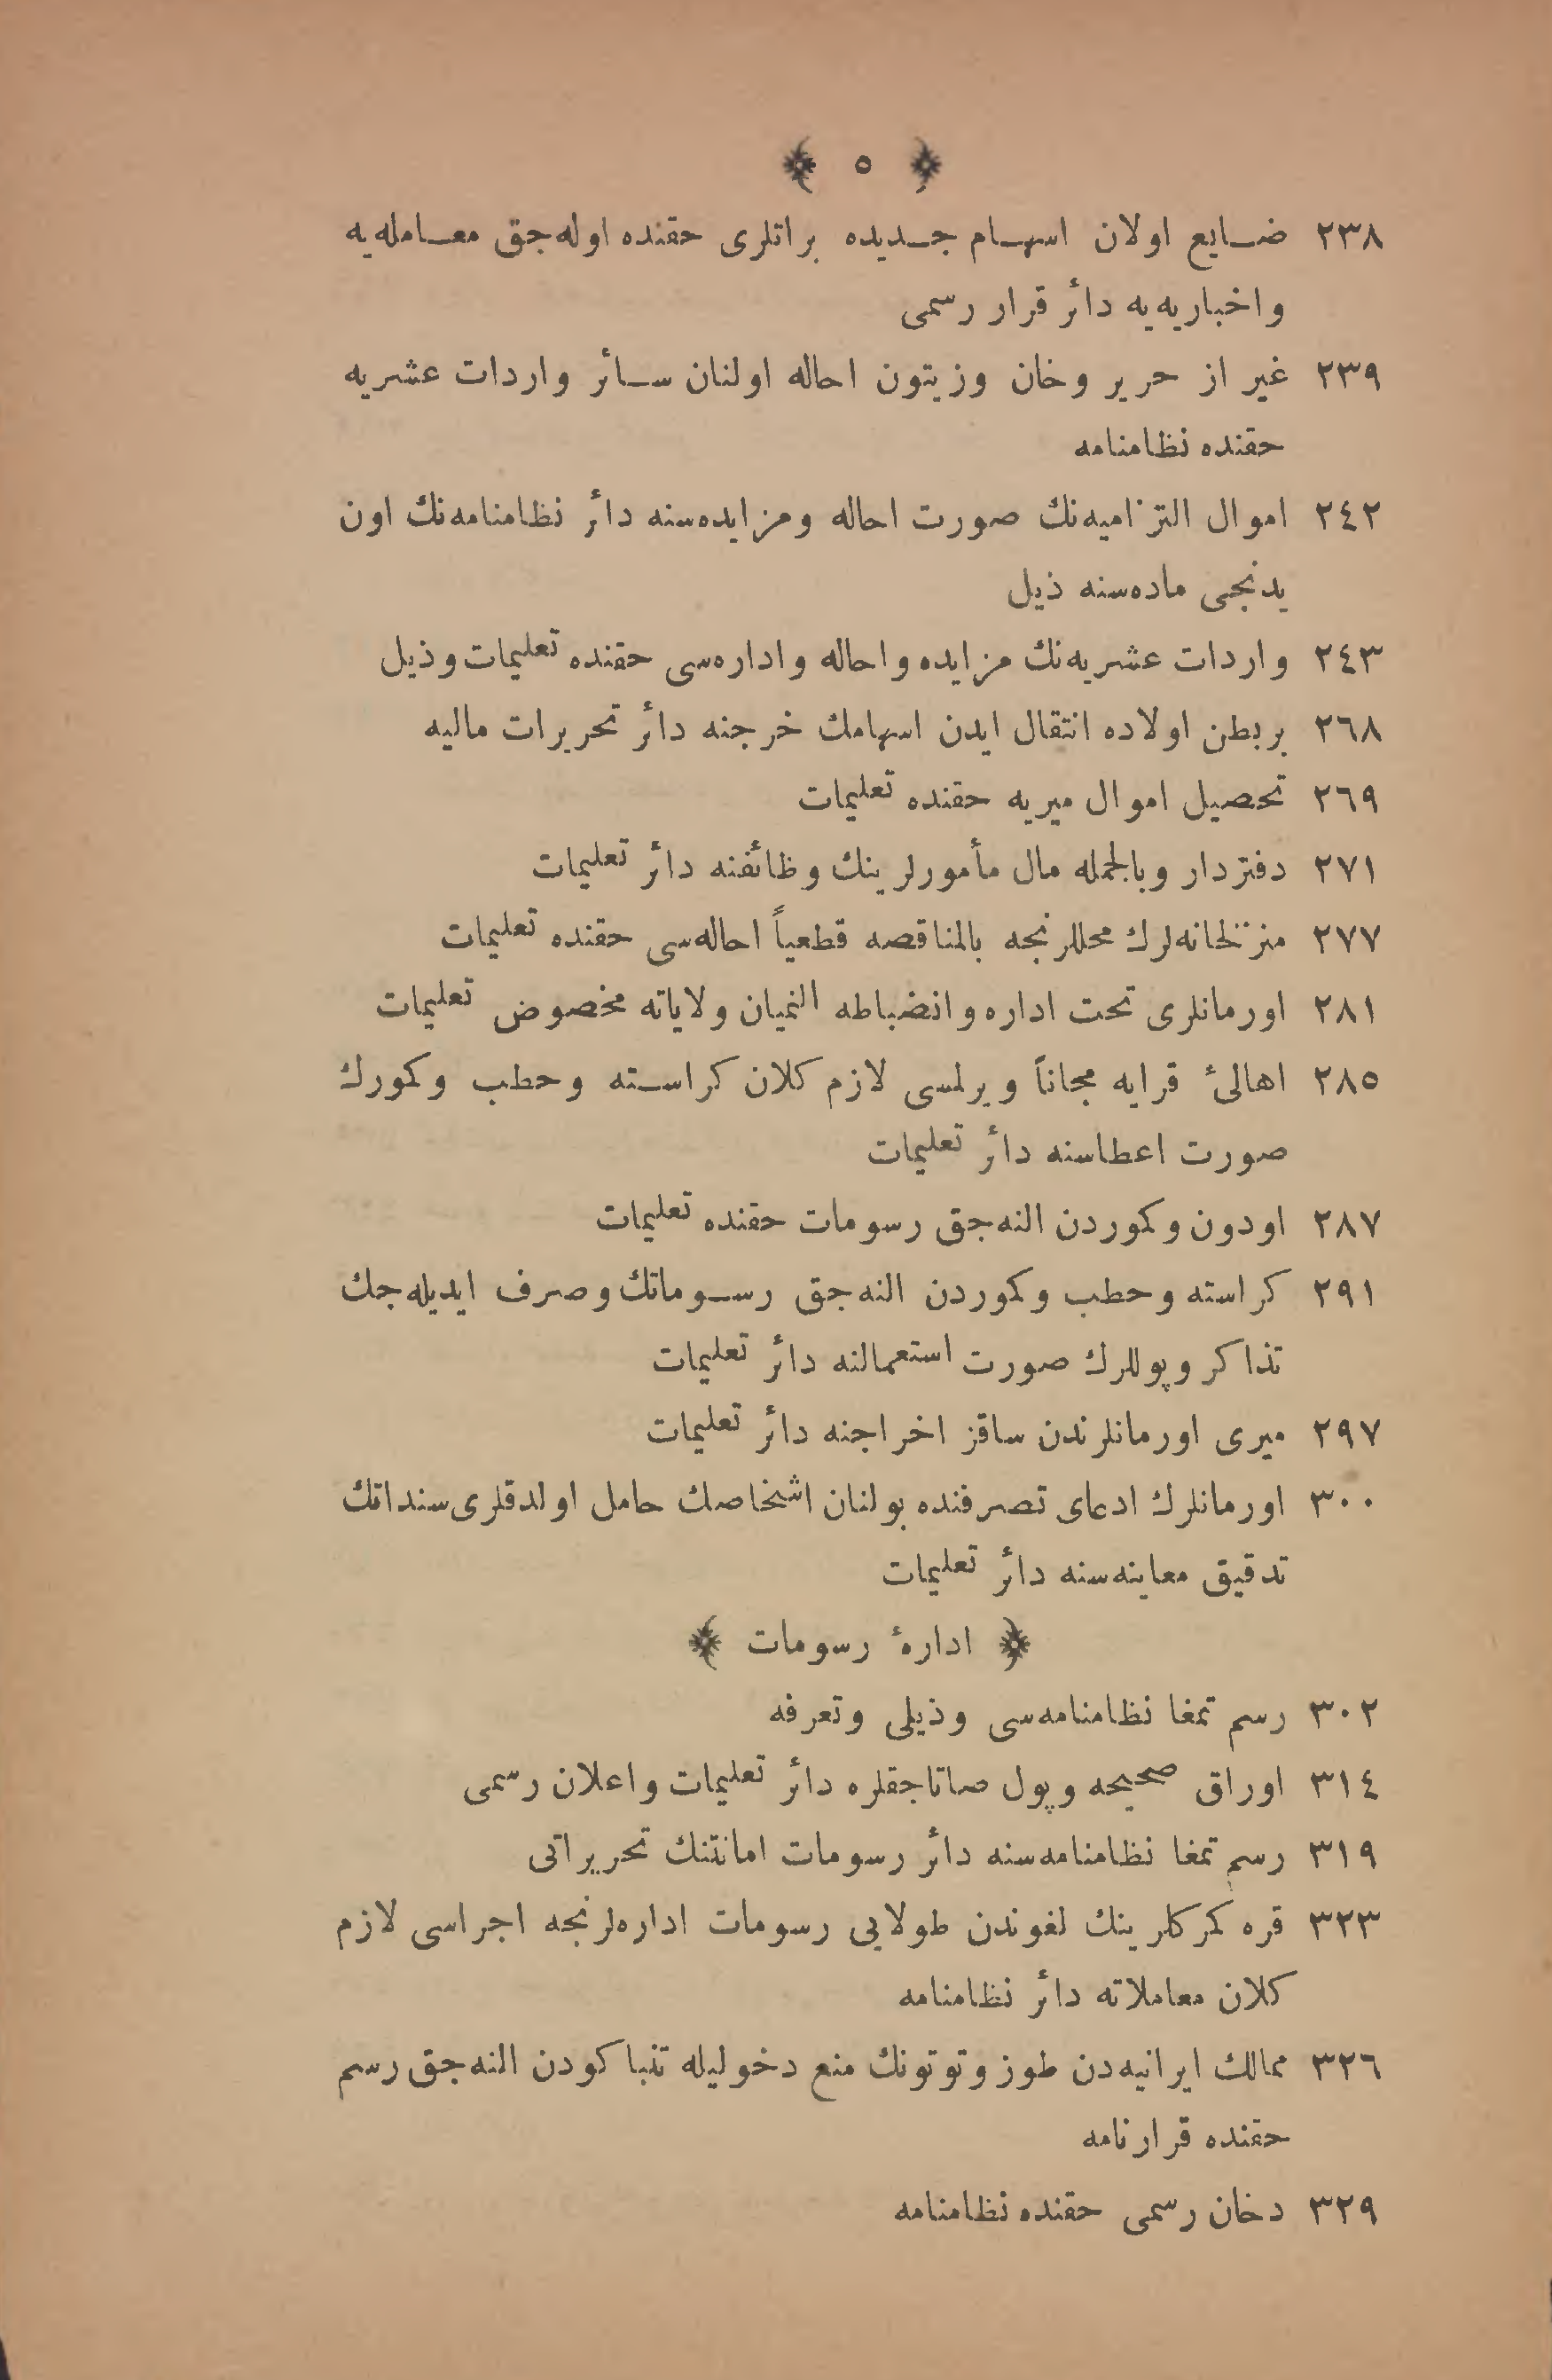 ﴿ ٥ ﴾
٢٣٨ ضايع اولان اسهام جديده براتلرى حقنده اوله‌جق معامله‌يه
واخباريه‌يه دائر قرار رسمى
٢٣٩ غير از حرير وخان وزيتون احاله اولنان سائر واردات عشريه
حقنده نظامنامه
٢٤٢ اموال التزاميه‌نك صورت احاله ومزايده‌سنه دائر نظامنامه‌نك اون
يدنجى ماده‌سنه ذيل
٢٤٣ واردات عشريه‌نك مزايده واحاله واداره‌سى حقنده تعليمات وذيل
٢٦٨ بربطن اولاده انتقال ايدن اسهامك خرجنه دائر تحريرات ماليه
٢٦٩ تحصيل اموال ميريه حقنده تعليمات
٢٧١ دفتردار وبالجمله مال مأمورلرينك وظائفنه دائر تعليمات
٢٧٧ منزلخانه‌لرك محللرنجه بالمناقصه قطعياً احاله‌سى حقنده تعليمات
٢٨١ اورمانلرى تحت اداره وانضباطه النميان ولاياته مخصوص تعليمات
٢٨٥ اهالئ قرايه مجاناً ويرلمسى لازم كلان كراسته وحطب وكمورك
صورت اعطاسنه دائر تعليمات
٢٨٧ اودون وكموردن النه‌جق رسومات حقنده تعليمات
٢٩١ كراسته وحطب وكموردن النه‌جق رسوماتك وصرف ايديله‌جك
تذاكر وپوللرك صورت استعمالنه دائر تعليمات
٢٩٧ ميرى اورمانلرندن ساقز اخراجنه دائر تعليمات
٣٠٠ اورمانلرك ادعاى تصرفنده بولنان اشخاصك حامل اولدقلرى سنداتك
تدقيق معاينه‌سنه دائر تعليمات
﴿ ادارۀ رسومات ﴾
٣٠٢ رسم تمغا نظامنامه‌سى وذيلى وتعرفه
٣١٤ اوراق صحيحه وپول صاتاجقلره دائر تعليمات واعلان رسمى
٣١٩ رسم تمغا نظامنامه‌سنه دائر رسومات امانتنك تحريراتى
٣٢٣ قره كمركلرينك لغوندن طولايى رسومات اداره‌لرنجه اجراسى لازم
كلان معاملاته دائر نظامنامه
٣٢٦ ممالك ايرانيه‌دن طوز وتوتونك منع دخوليله تنباكودن النه‌جق رسم
حقنده قرارنامه
٣٢٩ دخان رسمى حقنده نظامنامه